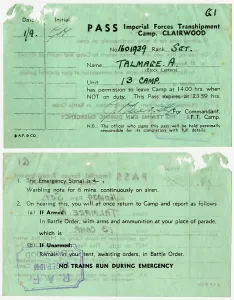 G1
Date Initial
1/9.
PASS Imperial Forces Transhipment
Camp, CLAIRWOOD
No. 1601939 Rank SGT.
Name TALMAGE. A.
(Block Letters)
Unit 13 CAMP.
has permission to leave Camp at 14.00 hrs. when
NOT on duty. This Pass expires at 23.59 hrs.
For Commandant,
I.F.T. Camp.
N.B. The officer who signs this pass will be held personally
responsible for its completion with full details.
1. The Emergency Signal is :—
Warbling note for 6 mins. continuously on siren.
2. On hearing this, you will at once return to Camp and report as follows
(a) If Armed:
In Battle Order, with arms and ammunition at your place of parade,
which is
(b) If Unarmed:
Remain in your tent, awaiting orders, in Battle Order.
NO TRAINS RUN DURING EMERGENCY
R.A.F.